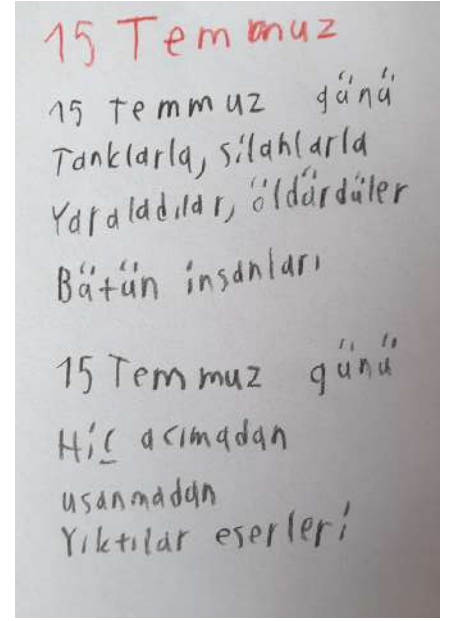 15 Temmuz
15 Temmuz günü
Tanklarla, silahlarla
Yaraladılar, öldürdüler
Bütün insanları
15 Temmuz günü
Hiç acımadan
usanmadan
Yıktılar eserleri